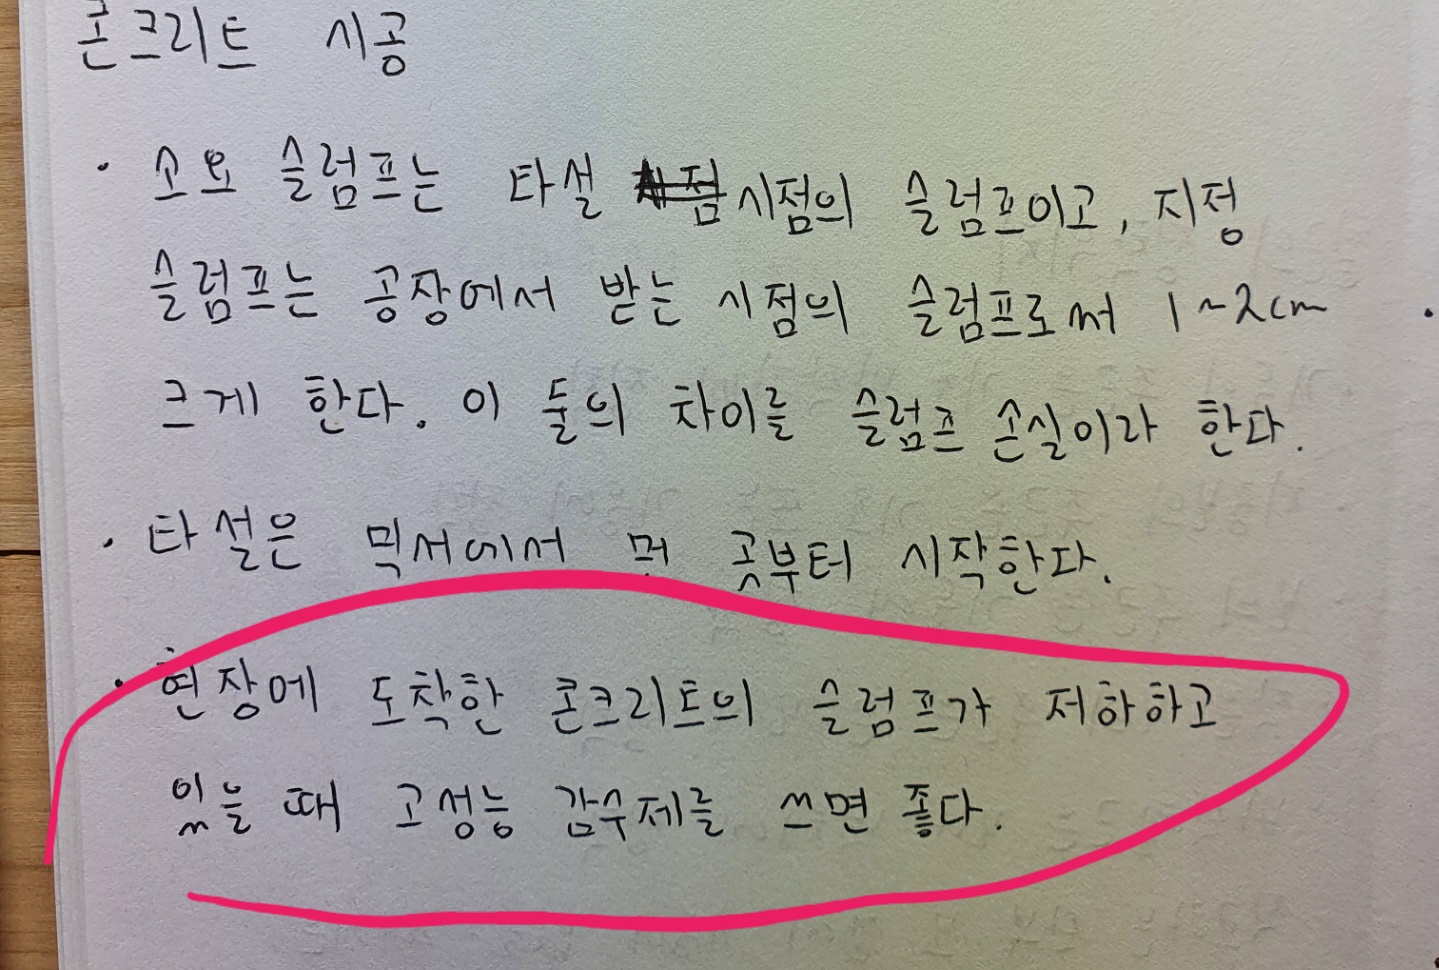 콘크리트 시공
· 소요 슬럼프는 타설 시점의 슬럼프이고, 지정
슬럼프는 공장에서 받는 시점의 슬럼프로써 1~2cm
크게 한다. 이 둘의 차이를 슬럼프 손실이라 한다.
· 타설은 믹서에서 먼 곳부터 시작한다.
· 현장에 도착한 콘크리트의 슬럼프가 저하하고
있을 때 고성능 감수제를 쓰면 좋다.